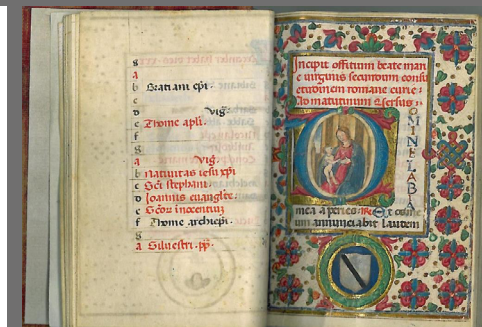 g
a
b Gratiani epi.
c
d Vig.
e Thome apli.
f
g
a Vig.
b Natiuitas iesu xpi
c Sci stephani.
d Joannis euangliste.
e Scor inocentium
f Thome archiepi.
g
a Siluestri. pp.
Incipit offitium beate mari
e uirginis secundum consu
etudinem romane curie.
Ad matutinum Uersus
O
MINE LABA
mea aperies. Et os me
um annunciabit laudem